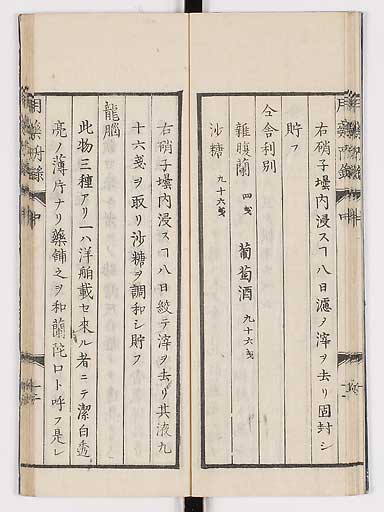 右硝子壜内浸スヿ八日濾ノ滓ヲ去リ固封シ
貯フ
仝舎利別
雜腹蘭 四戔 葡萄酒 九十六戔
沙糖 九十六戔
右硝子壜内浸スヿ八日絞テ滓ヲ去リ其液九
十六戔ヲ取リ沙糖ヲ調和シ貯フ
龍腦
此物三種アリ一ハ洋舶載セ來ル者ニテ潔白透
亮ノ薄片ナリ藥舗之ヲ和蘭陀口ト呼フ是レ